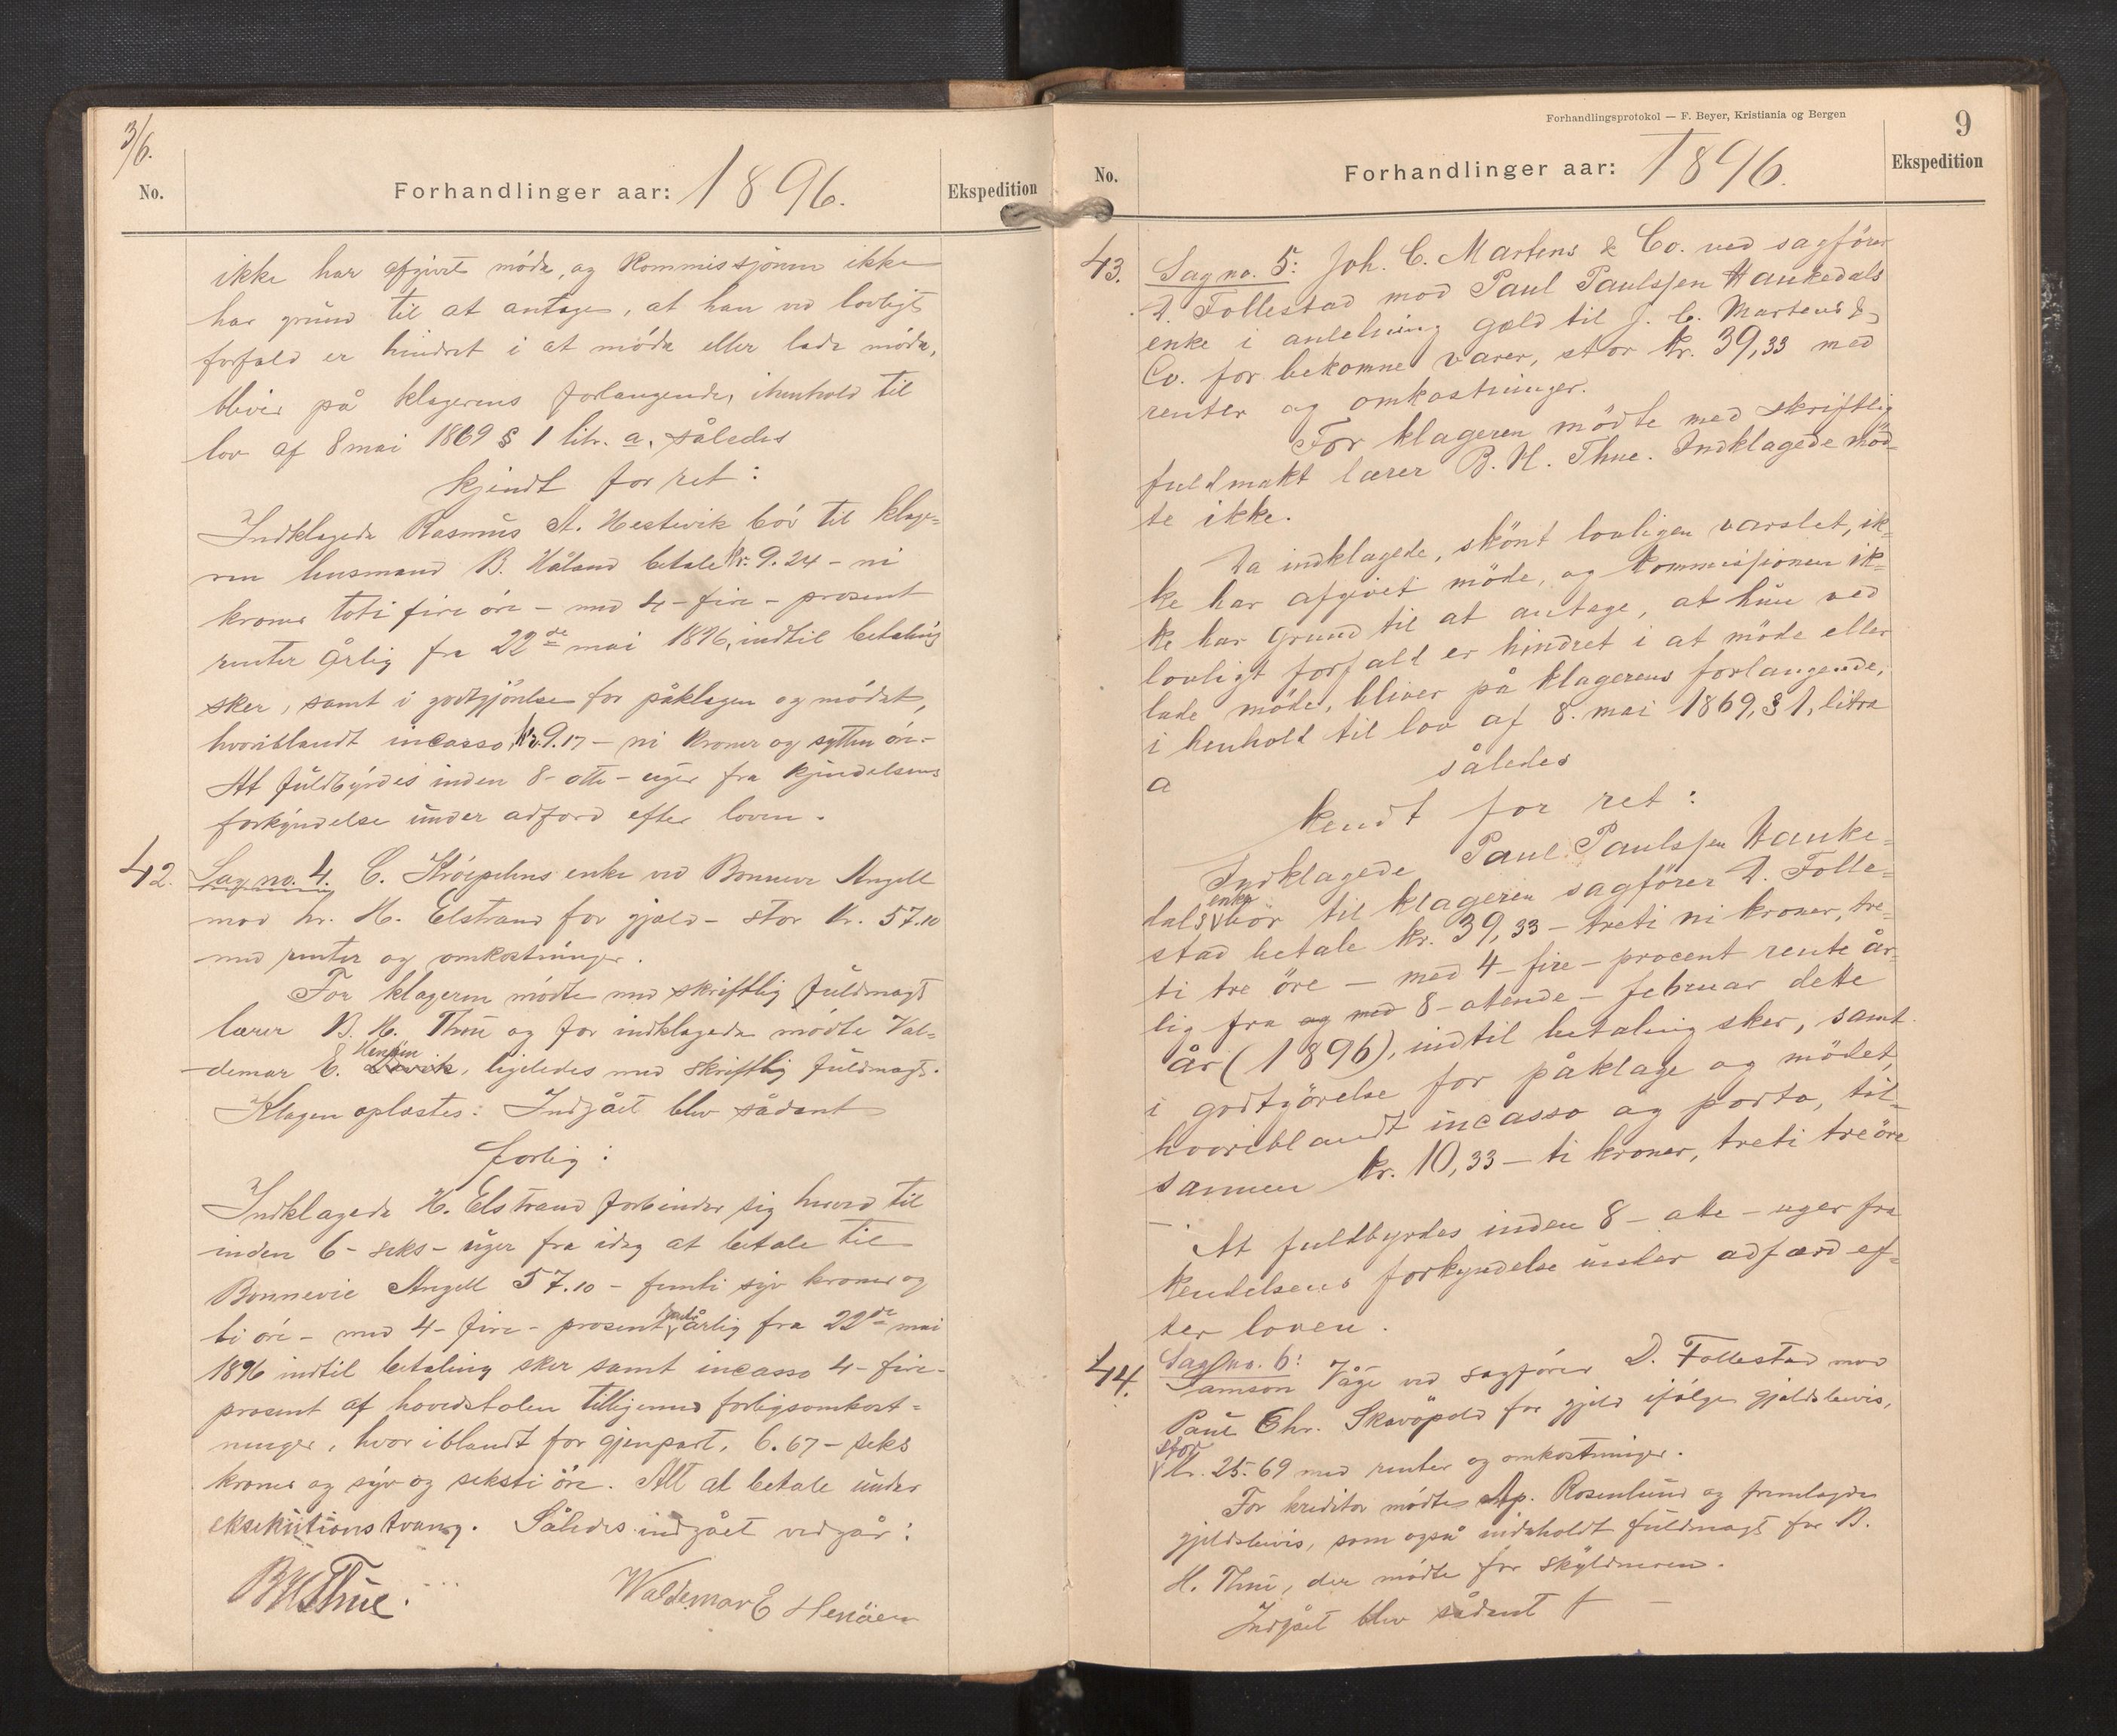 3/6.
No.
Forhandlinger aar: 1896.
Ekspedition
ikke har afgivet møde, og Kommissjonen ikke
har grund til at antage, at han ved lovligt
forfald er hindret i at møde eller lade møde,
bliver på klagerens forlangende, ihenhold til
lov af 8 mai 1869 § 1 litr. a, således
kjendt for ret:
Indklagede Rasmus A. Hestevik bör til klage-
ren husmand B. Håland betale Kr. 9.24 - ni
kroner toti fire öre - med 4 - fire - prosent
renter årlig fra 22de mai 1896, indtil betaling
sker, samt i godtgjörelse for påklagen og mødet,
hvoriblandt incasso, Kr. 9.17 - ni Kroner og sytten öre -
At fuldbyrdes inden 8 - otte - uger fra kjendelsens
forkyndelse under adførd efter loven.
42. Sag no. 4. C. Kröepeliens enke ved Bonnevie Angell
mod hr. H. Elstrand for gjæld - stor Kr. 57.10
med renter og omkostninger.
For klageren mødte med skriftlig fuldmagt
lærer B. H. Thue og for indklagede mødte Val-
demar E. Henöen, ligeledes med skriftlig fuldmagt.
Klagen oplæstes: Indgået blev sådant
forlig:
Indklagede H. Elstrand forbinder sig herved til
inden 6 - seks - uger fra idag at betale til
Bonnevie Angell 57.10 - femti syv kroner og
ti öre - med 4 - fire - prosent rente årlig fra 22de mai
1896 indtil betaling sker samt incasso 4 - fire -
prosent af hovedstolen tilligemed forligsomkost-
ninger, hvoriblandt for gjenpart, 6.67 - seks
kroner og syv og seksti öre. Alt at betale under
eksekutionstvang. Således indgået vedgår:
BHThue. Waldemar E Henöen
Forhandlingsprotokol — F. Beyer, Kristiania og Bergen
9
No.
Forhandlinger aar: 1896.
Ekspedition
43. Sag no. 5: Joh. C. Martens & Co. ved sagförer
D. Follestad mod Paul Paulssen Haukedals
enke i anledning gæld til J. C. Martens &
Co. for bekomne varer, stor kr. 39,33 med
renter og omkostninger.
For klageren mödte med skriftlig
fuldmakt lærer B. H. Thue. Indklagede möd-
te ikke.
Da indklagede, skönt lovligen varslet, ik-
ke har afgivet möde, og kommissionen ik-
ke har grund til at antage, at hun ved
lovligt forfald er hindret i at möde eller
lade möde, bliver på klagerens forlangende,
i henhold til lov af 8. mai 1869, § 1, litra
a således
kendt for ret:
Indklagede Paul Paulssen Hauke-
dals enke bör til klageren sagförer D. Folle-
stad betale kr. 39,33 - treti ni kroner, tre-
ti tre öre - med 4 - fire - procent rente år-
lig fra og med 8 - atende - februar dette
år (1896), indtil betaling sker, samt
i godtgörelse for påklage og mödet,
hvoriblandt incasso og porto, til-
sammen kr. 10,33 - ti kroner, treti tre öre
- .
At fuldbyrdes inden 8 - otte - uger fra
kendelsens forkyndelse under adfærd ef-
ter loven.
44. Sag no. 6:
Samson Våge ved sagförer D. Follestad mod
Paul Chr. Skavöpold for gjæld ifölge gjældsbevis,
stor Kr. 25.69 med renter og omkostninger.
For kreditor mødte Ap. Rosenlund og fremlagde
gjældsbevis, som også indeholdt fuldmagt for B.
H. Thue, der mødte for skyldneren.
Indgået blev sådant f